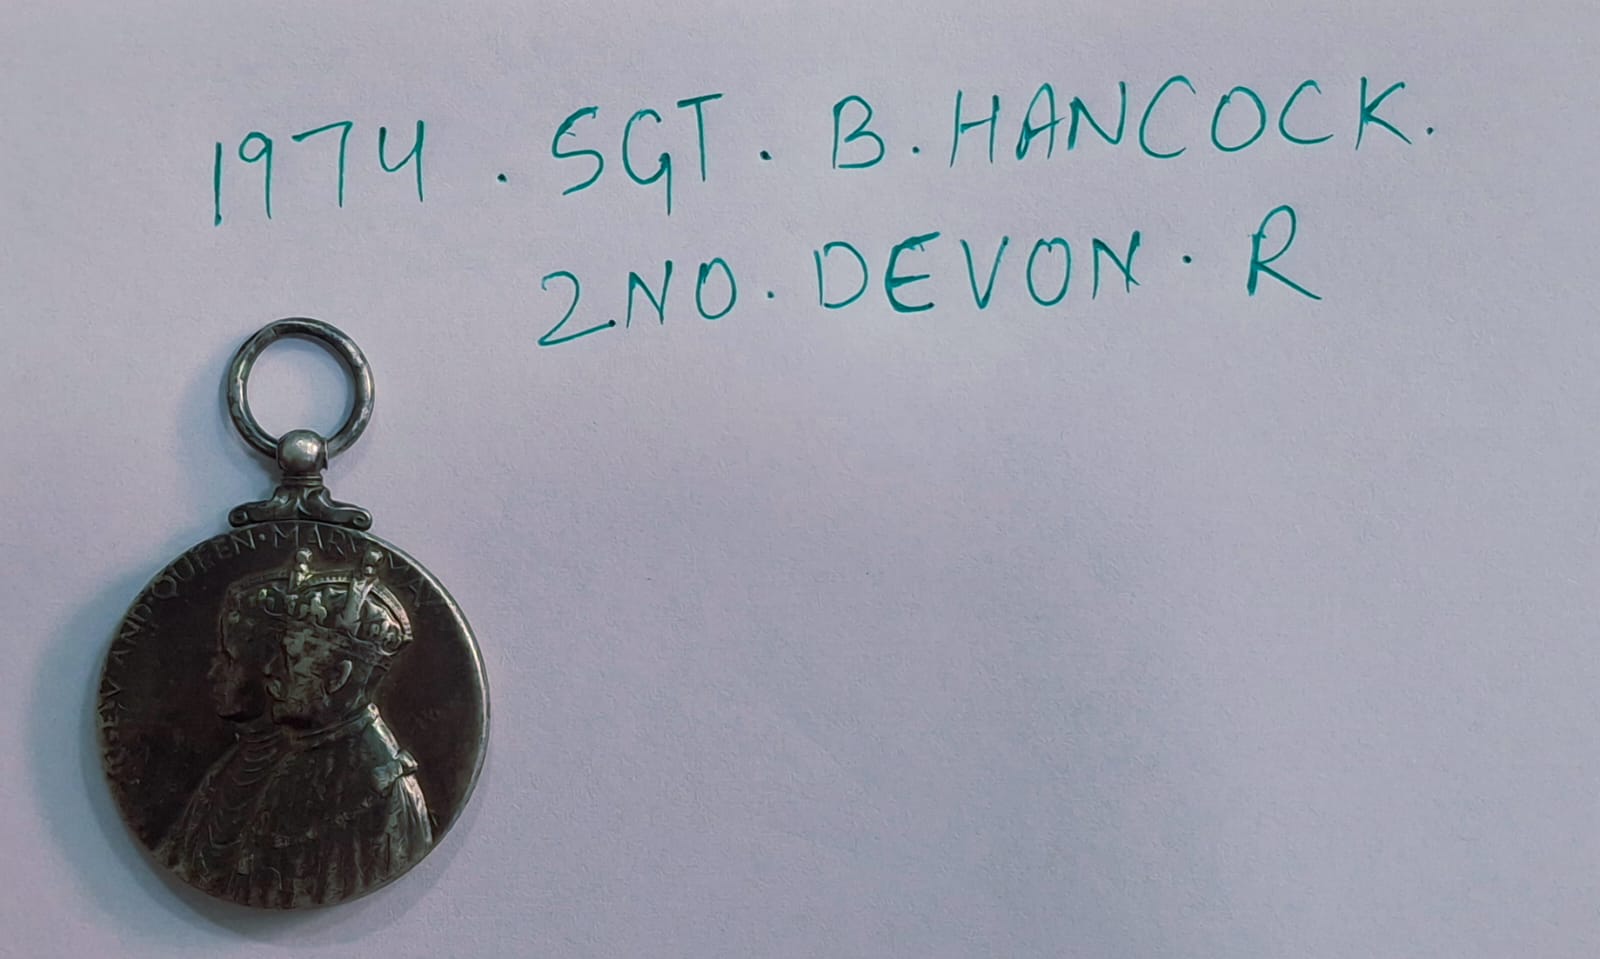 1974 . SGT . B . HANCOCK .
2ND . DEVON . R
V AND · QUEEN · MARY